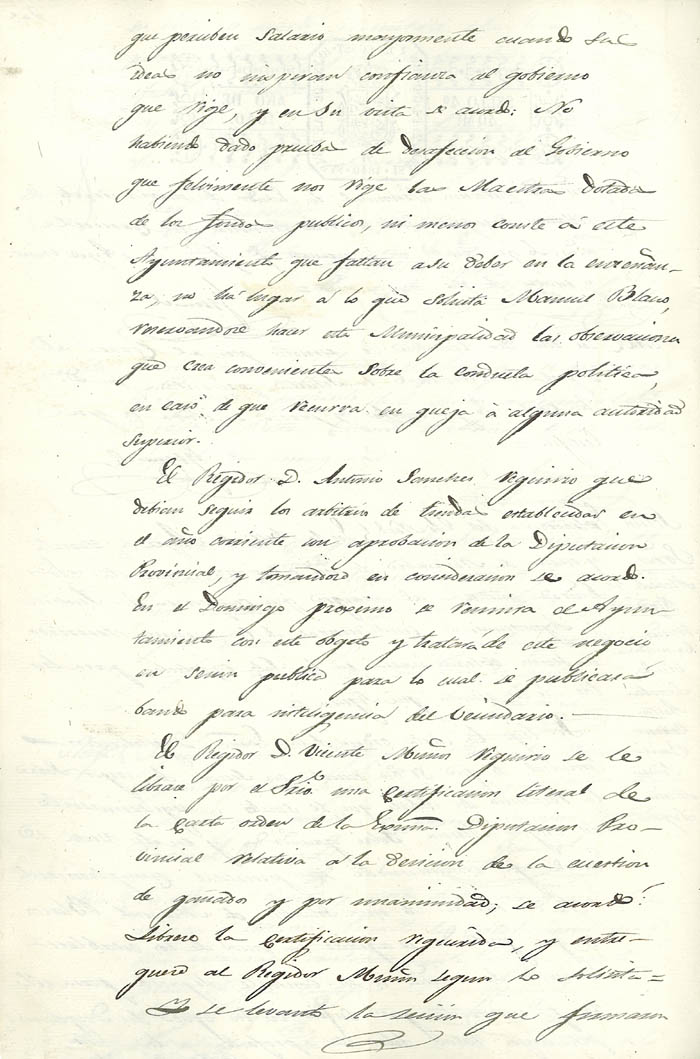 que perciben salario mayormente cuando sus
ideas no inspiran confianza al gobierno
que rige, y en su vista se acordó: No
habiendo dado prueba de desafeccion al Gobierno
que felizmente nos rige la Maestra dotada
de los fondos publicos, ni menos conste á este
Ayuntamiento que faltan a su deber en la enseñan-
za, no há lugar á lo que solicita Manuel Blanco,
reservandose hacer esta Municipalidad las observaciones
que crea convenientes sobre la conducta politica,
en caso de que recurra en queja á alguna autoridad
superior.
El Regidor D. Antonio Sanches requirio que
debian seguir los arbitrios de tienda establecidos en
el año corriente con aprobacion de la Diputacion
Provincial, y tomandose en consideracion se acordo.
En el Domingo proximo se reunira el Ayun-
tamiento con este objeto y tratará de este negocio
en sesion publica para lo cual se publicará
bando para inteligencia del Vecindario.
El Regidor D. Vicente Muños requirio se le
librase por el Srio. una certificacion literal de
la carta orden de la Exma. Diputacion Pro-
vincial relativa a la decision de la cuestion
de ganados y por unanimidad; se acordo:
Librese la certificacion requerida, y entre-
guese al Regidor Muños segun lo solicita=
Y se levantó la sesion que firmaron